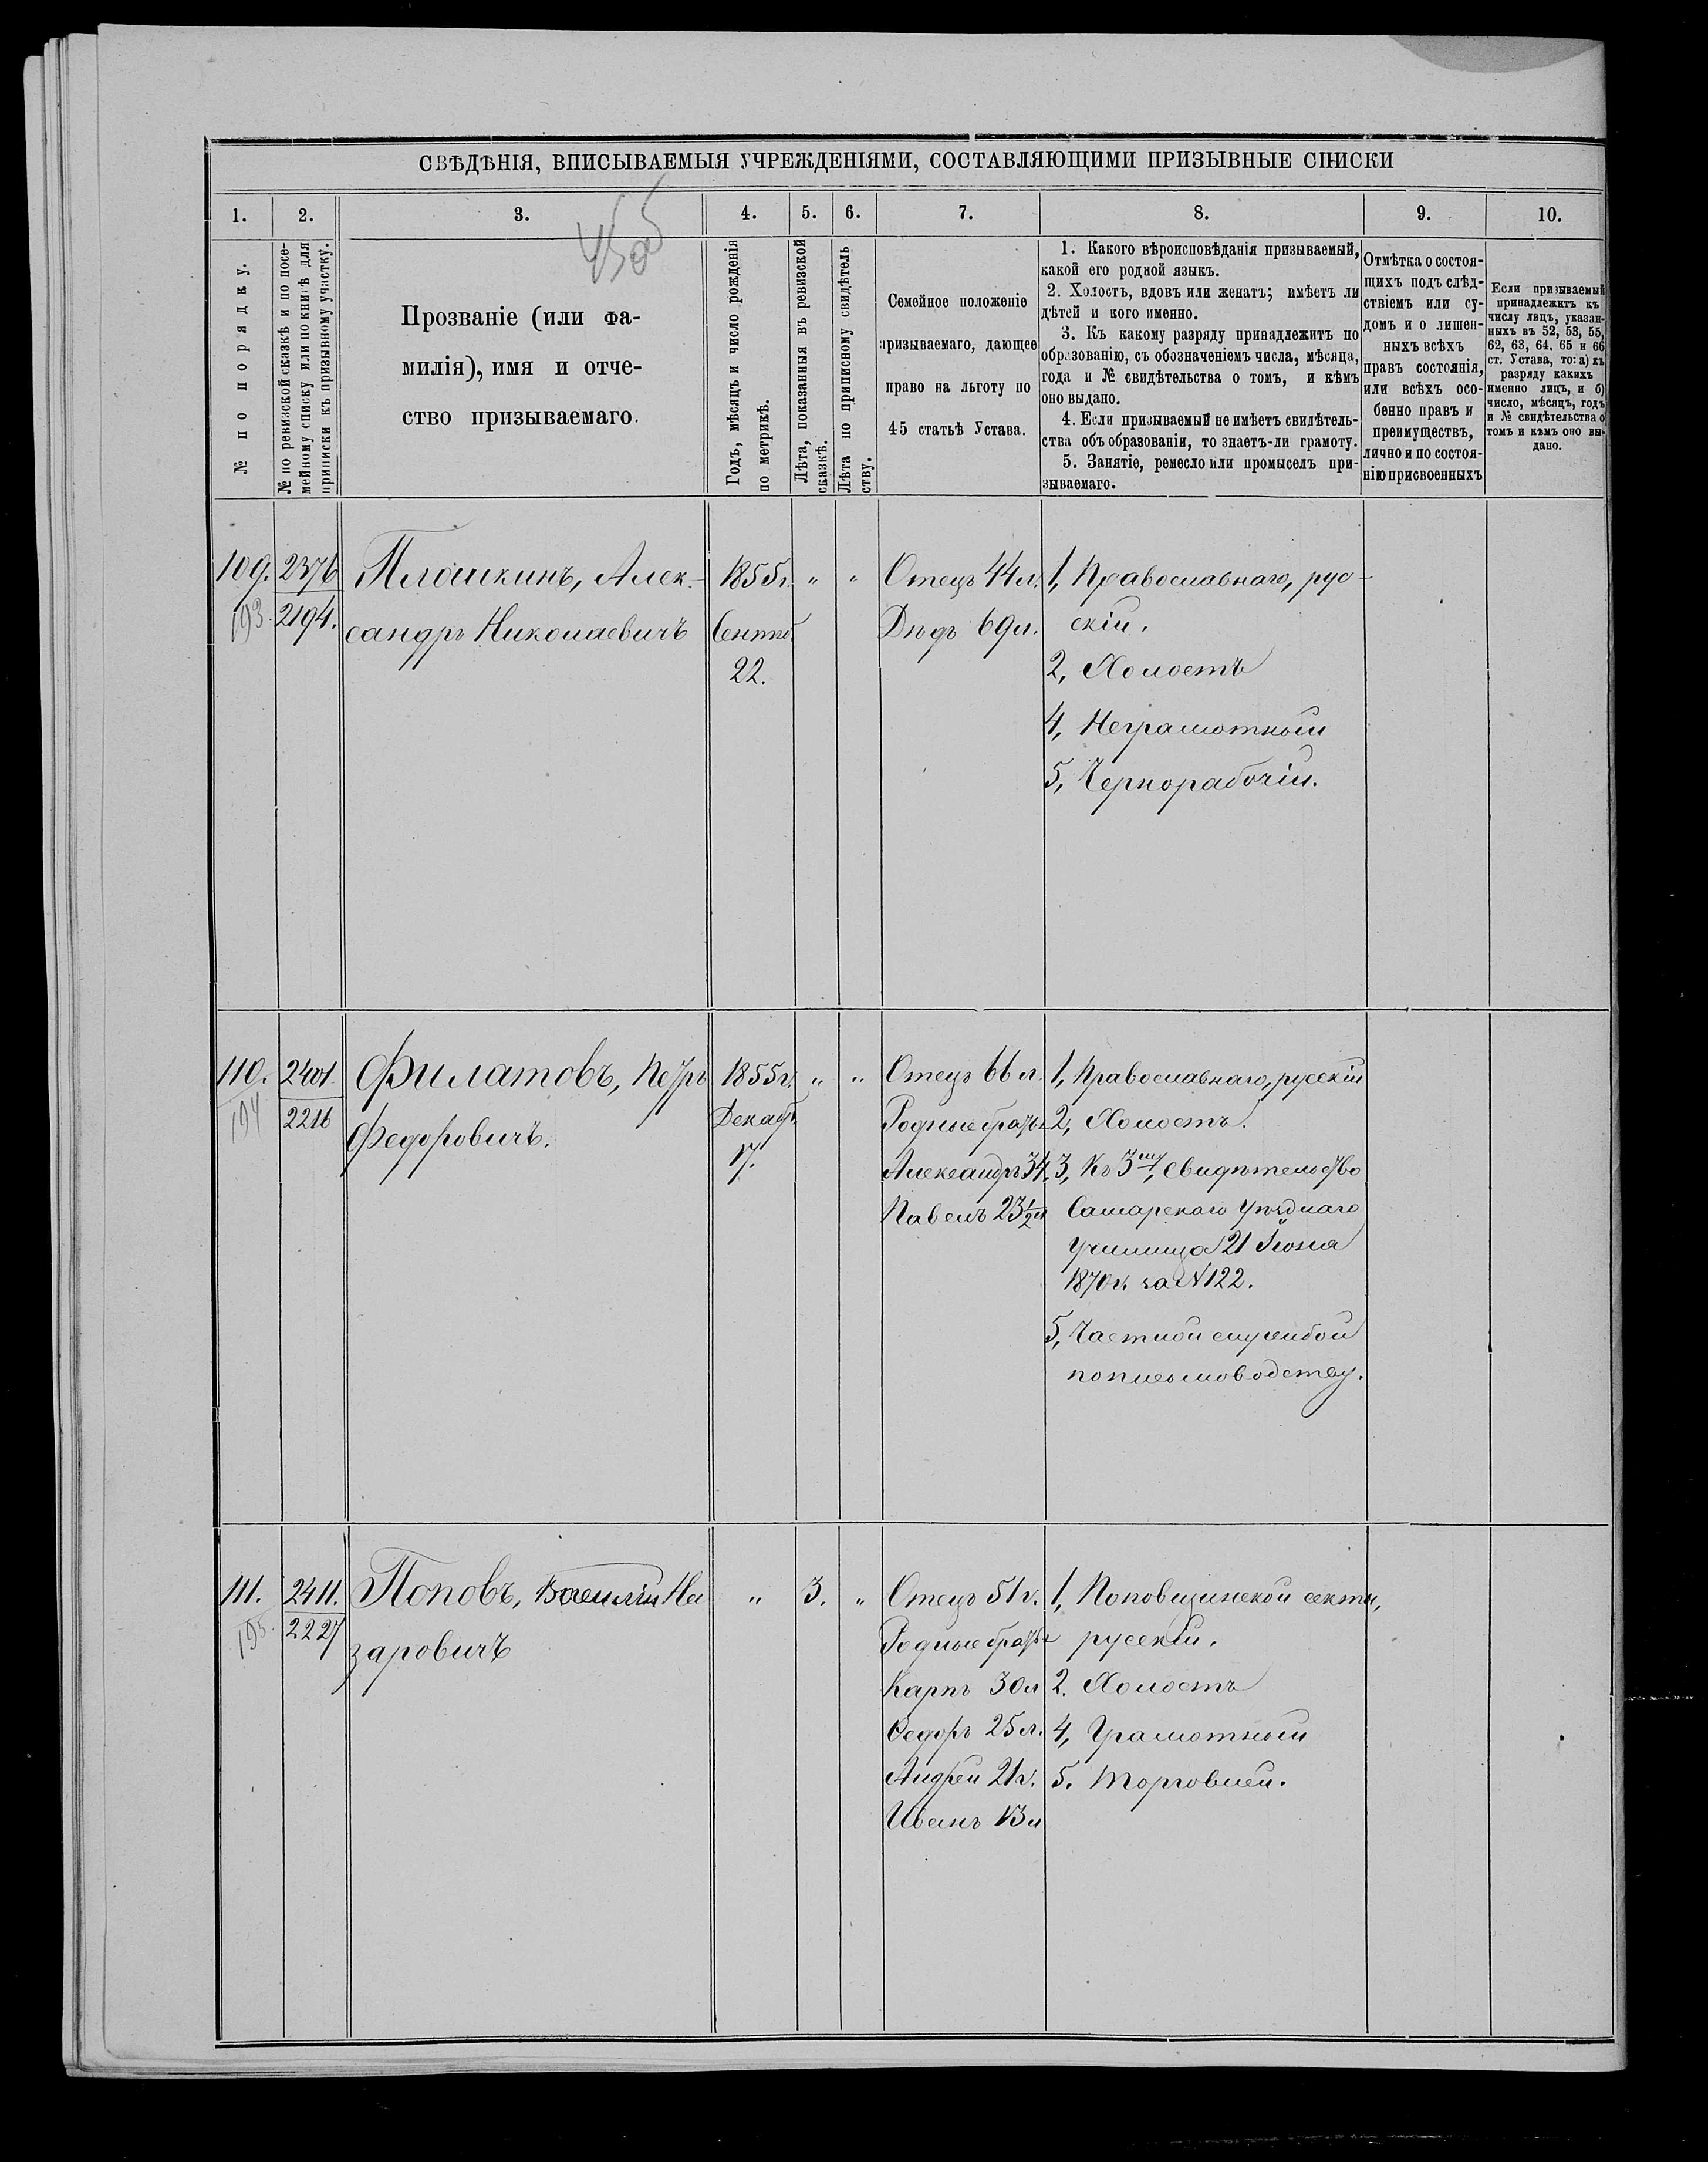 СВѢДѢНІЯ, ВПИСЫВАЕМЫЯ УЧРЕЖДЕНІЯМИ, СОСТАВЛЯЮЩИМИ ПРИЗЫВНЫЕ СПИСКИ
1. 2. 3. 4. 5. 6. 7. 8. 9. 10.
№ по порядку.
№ по ревизской сказкѣ и по посе-
мейному списку или по книгѣ для
приписки къ призывному участку.
Прозваніе (или фа-
милія), имя и отче-
ство призываемаго.
Годъ, мѣсяцъ и число рожденія
по метрикѣ.
Лѣта, показанныя въ ревизской
сказкѣ.
Лѣта по приписному свидѣтель
ству.
Семейное положеніе
призываемаго, дающее
право на льготу по
45 статьѣ Устава.
1. Какого вѣроисповѣданія призываемый,
какой его родной языкъ.
2. Холостъ, вдовъ или женатъ; имѣетъ ли
дѣтей и кого именно.
3. Къ какому разряду принадлежитъ по
образованію, съ обозначеніемъ числа, мѣсяца,
года и № свидѣтельства о томъ, и кѣмъ
оно выдано.
4. Если призываемый не имѣетъ свидѣтель-
ства объ образованіи, то знаетъ-ли грамоту.
5. Занятіе, ремесло или промыселъ при-
зываемаго.
Отмѣтка о состоя-
щихъ подъ слѣд-
ствіемъ или су-
домъ и о лишен-
ныхъ всѣхъ
правъ состоянія,
или всѣхъ осо-
бенно правъ и
преимуществъ,
лично и по состоя-
нію присвоенныхъ
Если призываемый
принадлежитъ къ
числу лицъ, указан-
ныхъ въ 52, 53, 55,
62, 63, 64, 65 и 66
ст. Устава, то: а) къ
разряду какихъ
именно лицъ, и б)
число, мѣсяцъ, годъ
и № свидѣтельства о
томъ и кѣмъ оно вы-
дано.
109. 2376 Плошкинъ, Алек- 1855г. " " Отецъ 44 л. 1, Православнаго, рус-
193. 2194. сандръ Николаевичъ Сентяб. Дѣдъ 69 л. скій.
22. 2, Холостъ
4, Неграмотный
5, Чернорабочій.
110. 2401 Филатовъ, Петръ 1855г. " " Отецъ 66 л. 1, Православнаго, русскій
194 2216 Федоровичъ. Декаб. Родные братья 2, Холостъ.
17. Александръ 34. 3, Къ 3му, свидѣтельство
Павелъ 23½ л Самарскаго Уѣзднаго
Училища 21 Іюня
1870г. за № 122.
5, Частной службой
по письмоводству.
111. 2411. Поповъ, Василій На " 3. " Отецъ 51 г. 1, Поповщинской секты,
195. 2227 заровичъ Родные братья русскій.
Карпъ 30 л 2. Холостъ
Федоръ 25 л. 4, Грамотный
Андрей 21 г. 5. Торговлей.
Иванъ 13 л